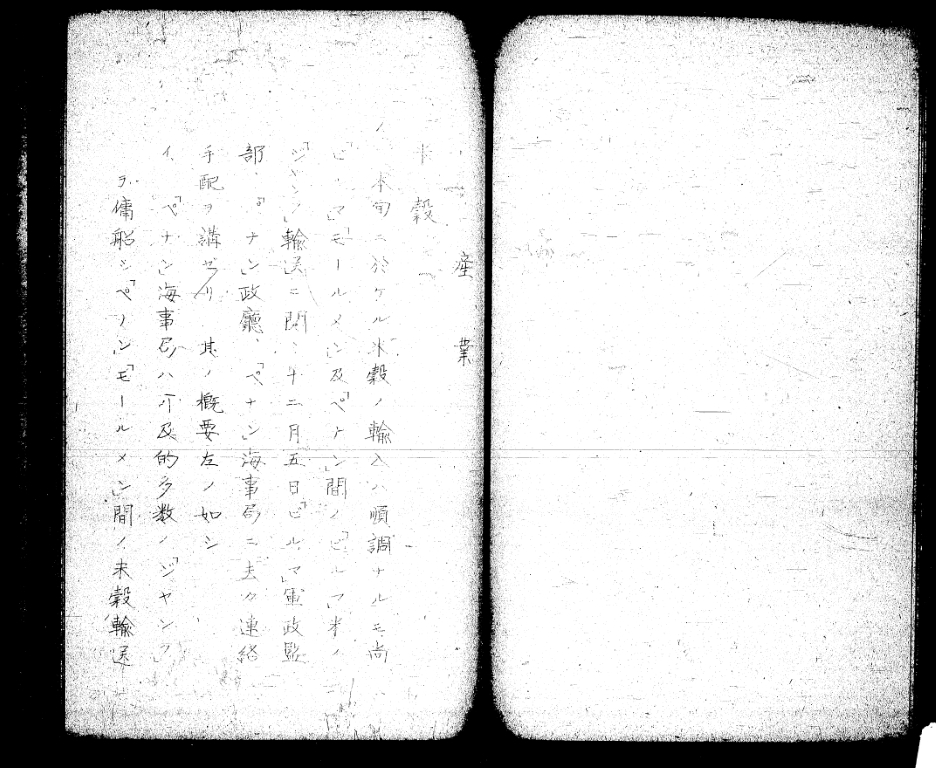 産業
米穀
本旬ニ於ケル米穀ノ輸入ハ順調ナルモ尚
「マ」「モールメン」及「ペナン」間ノ「ビルマ」米ノ
輸送ニ関シ十二月五日「ビルマ」軍政監
部、「ペナン」政廳、「ペナン」海事局ニ夫々連絡
手配ヲ講ゼリ 其ノ概要左ノ如シ
イ、「ペナン」海事局ハ可及的多数ノ「ジャンク」
ヲ傭船シ「ペナン」「モールメン」間ノ米穀輸送